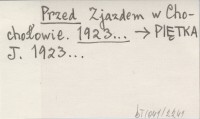 Przed Zjazdem w Cho-
chołowie. 1923... → PIĘTKA
J. 1923...